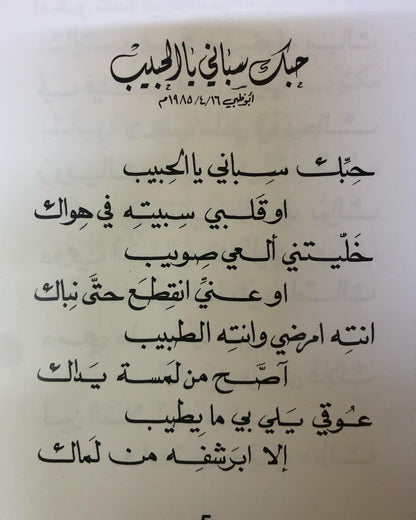 حبك سباني يا الحبيب
أبوظبي ١٩٨٥/٤/١٦م
حِبِّك سِباني يا الحِبيب
او قَلبي سِبيتِه في هِواك
خَلّيتني ألعي صِويب
او عنيِّ انقِطع حتَّى نِباك
انتِه امرضي وانتِه الطبيب
آصَح من لَمسة يَداك
عُوقي يَلي بي ما يطيب
إلا ابرَشفِه من لَماك